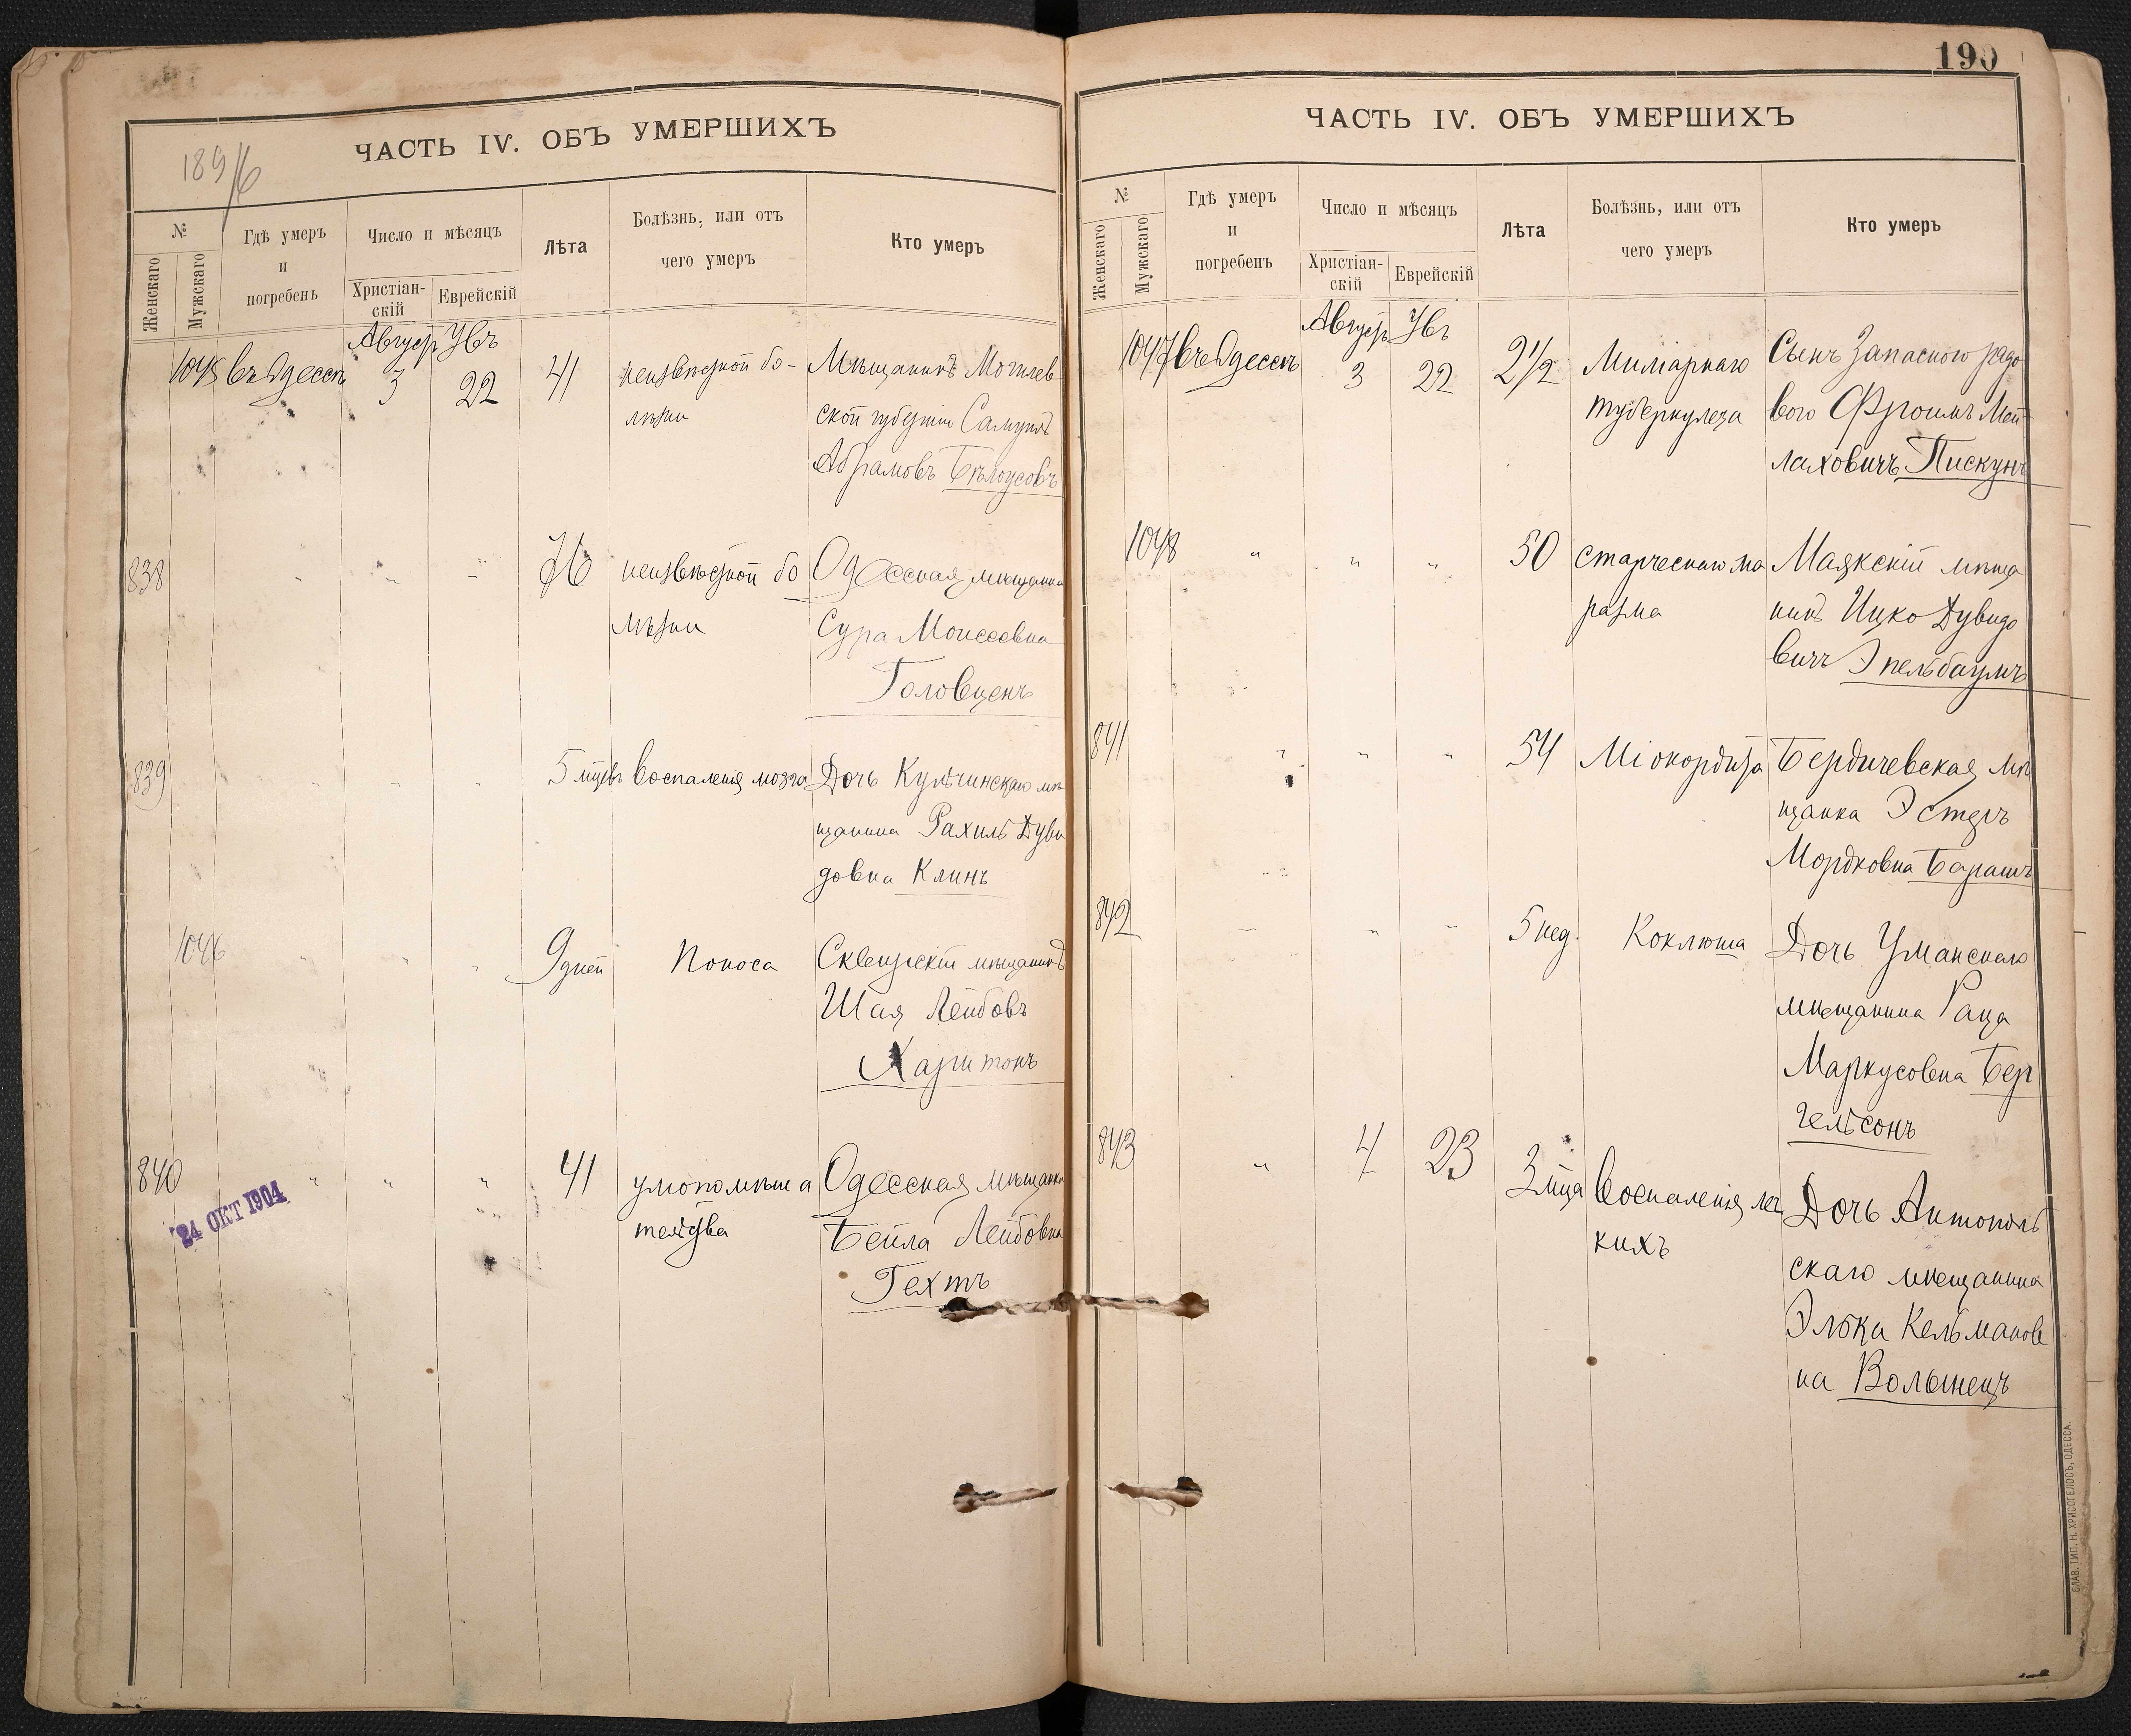 1896
ЧАСТЬ IV. ОБЪ УМЕРШИХЪ
№
Женскаго
Мужскаго
Гдѣ умеръ
и
погребенъ
Число и мѣсяцъ
Христіан-
скій
Еврейскій
Лѣта
Болѣзнь, или отъ
чего умеръ
Кто умеръ
Август Увъ
1045 въ Одессѣ 3 22 41 неизвѣстной бо- Мѣщанинъ Могилев
лѣзни ской губерніи Самуилъ
Абрамовъ Бѣлоусовъ
838 " " " 76 неизвѣстной бо Одесская мѣщанка
лѣзни Сура Моисеевна
Головценъ
839 " " " 5 мцевъ Воспаленія мозга Дочь Кульчинскаго мѣ
щанина Рахиль Дуви
довна Клинъ
1046 " " " 9 дней Поноса Сквирскій мѣщанинъ
Шая Лейбовъ
Харитонъ
840 " " " 41 умопомѣша Одесская мѣщанка
тельства Бейла Лейбовна
Гехтъ
24 ОКТ 1904
190
ЧАСТЬ IV. ОБЪ УМЕРШИХЪ
№
Женскаго
Мужскаго
Гдѣ умеръ
и
погребенъ
Число и мѣсяцъ
Христіан-
скій
Еврейскій
Лѣта
Болѣзнь, или отъ
чего умеръ
Кто умеръ
Август Увъ
1047 въ Одессѣ 3 22 2 1/2 Миліарнаго Сынъ Запасного рядо
туберкулеза вого Фроимъ Мей
лаховичъ Пискунъ
1048 " " " 50 старческаго ма Маякскій мѣща
разма нинъ Ицко Дувидо
вичъ Эпельбаумъ
841 " " " 54 Міокордита Бердичевская мѣ
щанка Эстеръ
Мордковна Барашъ
842 " " " 5 нед. Коклюша Дочь Уманскаго
мѣщанина Раца
Маркусовна Бер
гельсонъ
843 " 4 23 3 мца Воспаленія лег Дочь Антополь
кихъ скаго мѣщанина
Элька Кельманов
на Волынецъ
СЛАВ. ТИП. Н. ХРИСОГЕЛОСЪ, ОДЕССА.